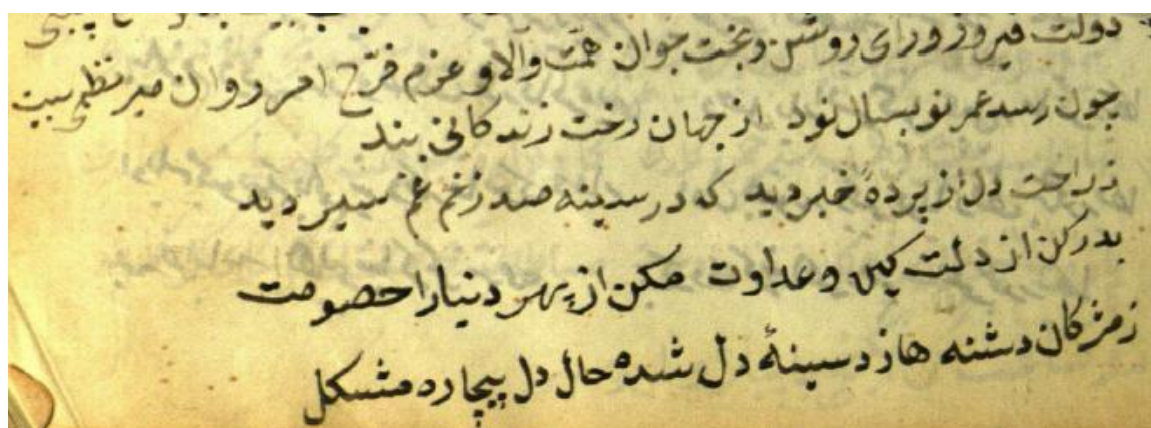 دولت فیروز و رای روشن و بخت جوان همت والا و عزم فرخ امر روان میر نظمی بیت
چون رسد عمر تو بسال نود از جهان رخت زندکانی بند
ز راحت دل از پرده خبر دید که در سینه صد زخم غم سپر دید
بدر کن از دلت کین و عداوت مکن از بهر دنیا را خصومت
ز مژکان دشنه ها زد سینهٔ دل شده حال دل بیچاره مشکل